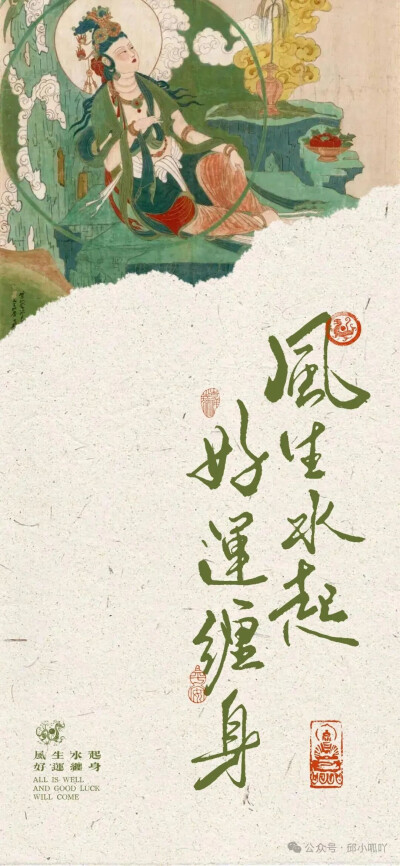 風生水起
好運纏身
風生水起
好運纏身
ALL IS WELL
AND GOOD LUCK
WILL COME
公众号·邱小呱吖